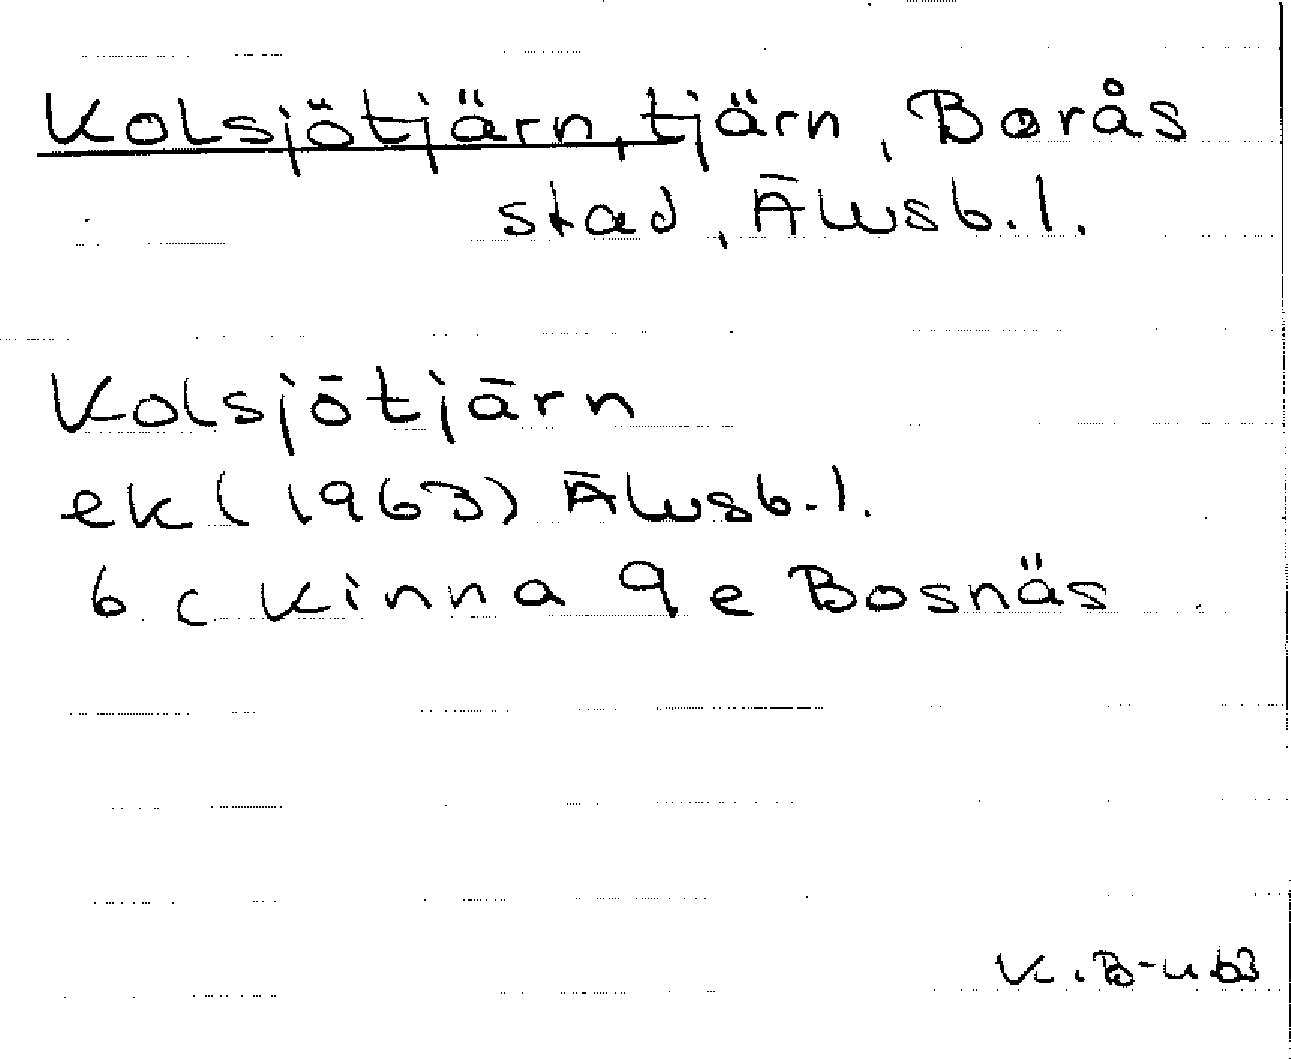 Kolsjötjärn, tjärn, Borås
stad, Älvsb. l.
Kolsjötjärn
ek (1963) Älvsb. l.
6 c Kinna 9 e Bosnäs
K. B-u 63